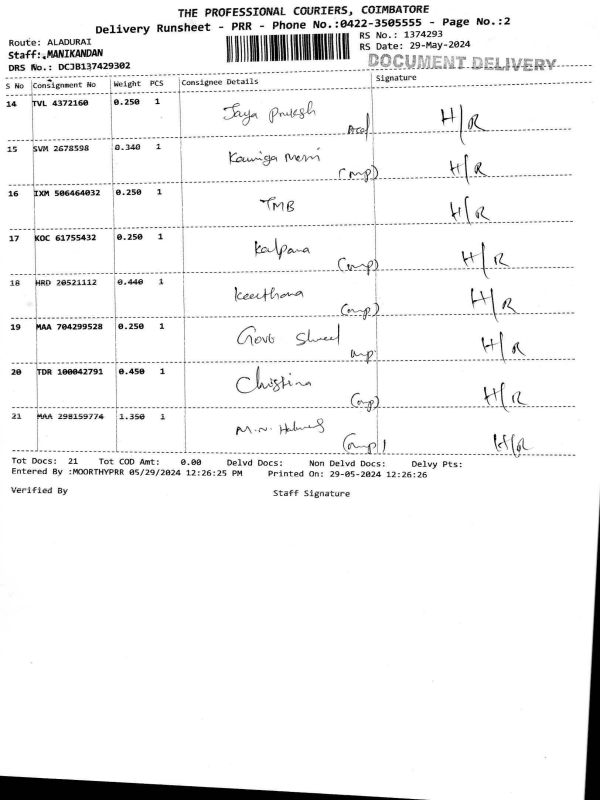 THE PROFESSIONAL COURIERS, COIMBATORE
Delivery Runsheet - PRR - Phone No.:0422-3505555 - Page No.:2
Route: ALADURAI
RS No.: 1374293
Staff:.MANIKANDAN
RS Date: 29-May-2024
DRS No.: DCJB137429302
DOCUMENT DELIVERY
S No Consignment No Weight PCS Consignee Details Signature
14 TVL 4372160 0.250 1 Jaya H/R
15 SVM 2678598 0.340 1 (mp) H/R
16 IXM 506464032 0.250 1 TMB H/R
17 KOC 61755432 0.250 1 Kalpana (mp) H/R
18 HRD 20521112 0.440 1 Keerthana (mp) H/R
19 MAA 704299528 0.250 1 mp H/R
20 TDR 100042791 0.450 1 Christina (mp) H/R
21 MAA 298159774 1.350 1 M.N. (mp) H/R
Tot Docs: 21 Tot COD Amt: 0.00 Delvd Docs: Non Delvd Docs: Delvy Pts:
Entered By :MOORTHYPRR 05/29/2024 12:26:25 PM Printed On: 29-05-2024 12:26:26
Verified By Staff Signature